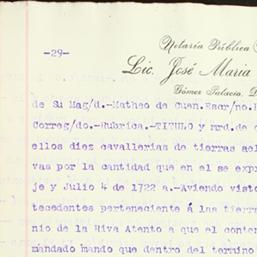 Notaría Pública
-29-
Lic. José Maria
Gómez Palacio, D
de Su Mag/d.-Matheo de Cuen.Escr/no.
Correg/do.-Rubrica.-TITULO y mrd.de
ellos diez cavallerias de tierras
vas por la cantidad que en el se expr
je y Julio 4 de 1722 a.-Aviendo visto
tecedentes perteneciente á las tierra
nio de la Hiva Atento a que el conten
mandado mando que dentro del termino